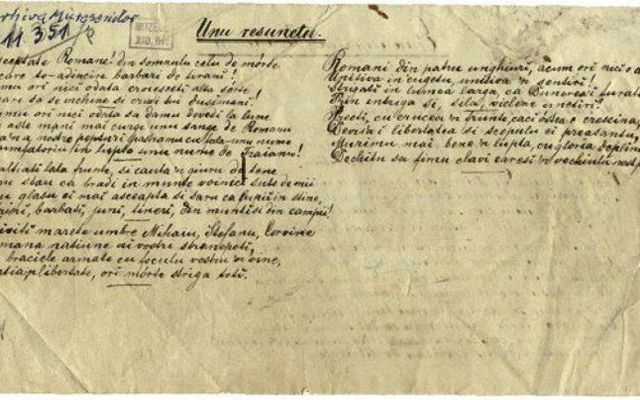 Arhiva Muresenilor
11351/2
MUZEUL
JUD. BV.
Unu resunetu.
Romane! din somnulu celu de mórte
care te-adincira barbari de tirani!
ori nici odata croiesci alta sórte
care sa se inchine si crudii tei dusmani!
ori nici odata sa damu dovedi la lume
aste mani mai curge unu sange de Romanu
a nostre pepturi pastramu cu fala-unu nume
in lupta unu nume de Traianu!
lata frunte, si cauta'n giuru de tene
stau ca bradi in munte voinici sute de mii
glasu ei mai asceapta si saru ca lupii in stine,
barbati, juni, tineri, din munti si din campii!
marete umbre Mihaiu, Stefanu, Corvine
natiune ai vostri stranepoti,
braciele armate cu foculu vostru'n vine,
libertate, ori mórte striga toti.
Romani din patru unghiuri, acum ori nici o
Uniti-va in cugetu, uniti-va'n sentiri!
Strigati in lumea larga, ca Dunerea-i furata
Prin intriga si sila, viclene uneltiri!
Preoti, cu crucea'n frunte, caci óstea e crestina,
Devisa-i libertatea si scopulu ei preasantu,
Murimu mai bene'n lupta, cu gloria deplina
Decâtu sa fimu sclavi earesi'n vechiulu